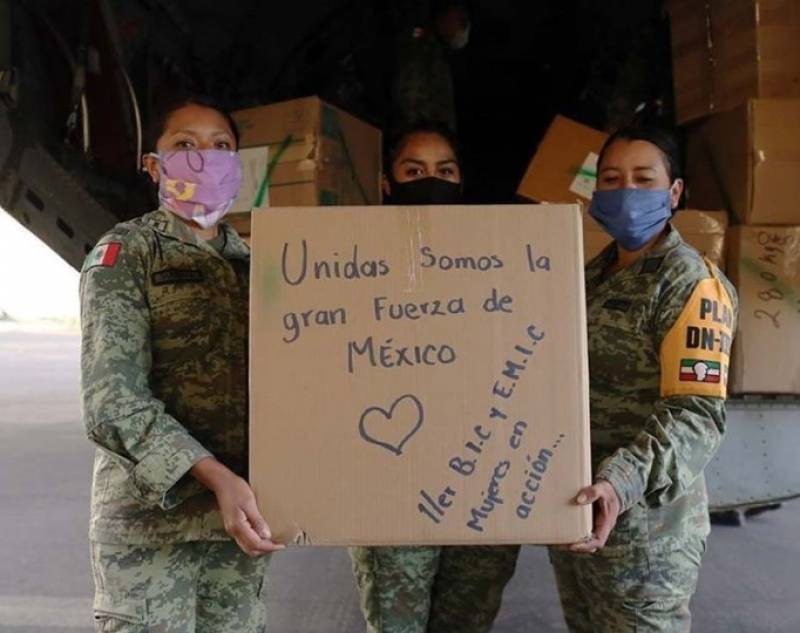 Unidas somos la
gran Fuerza de
MÉXICO
1/er B.I.C Y E.M.I.C
Mujeres en
acción...
PLA
DN-
280H